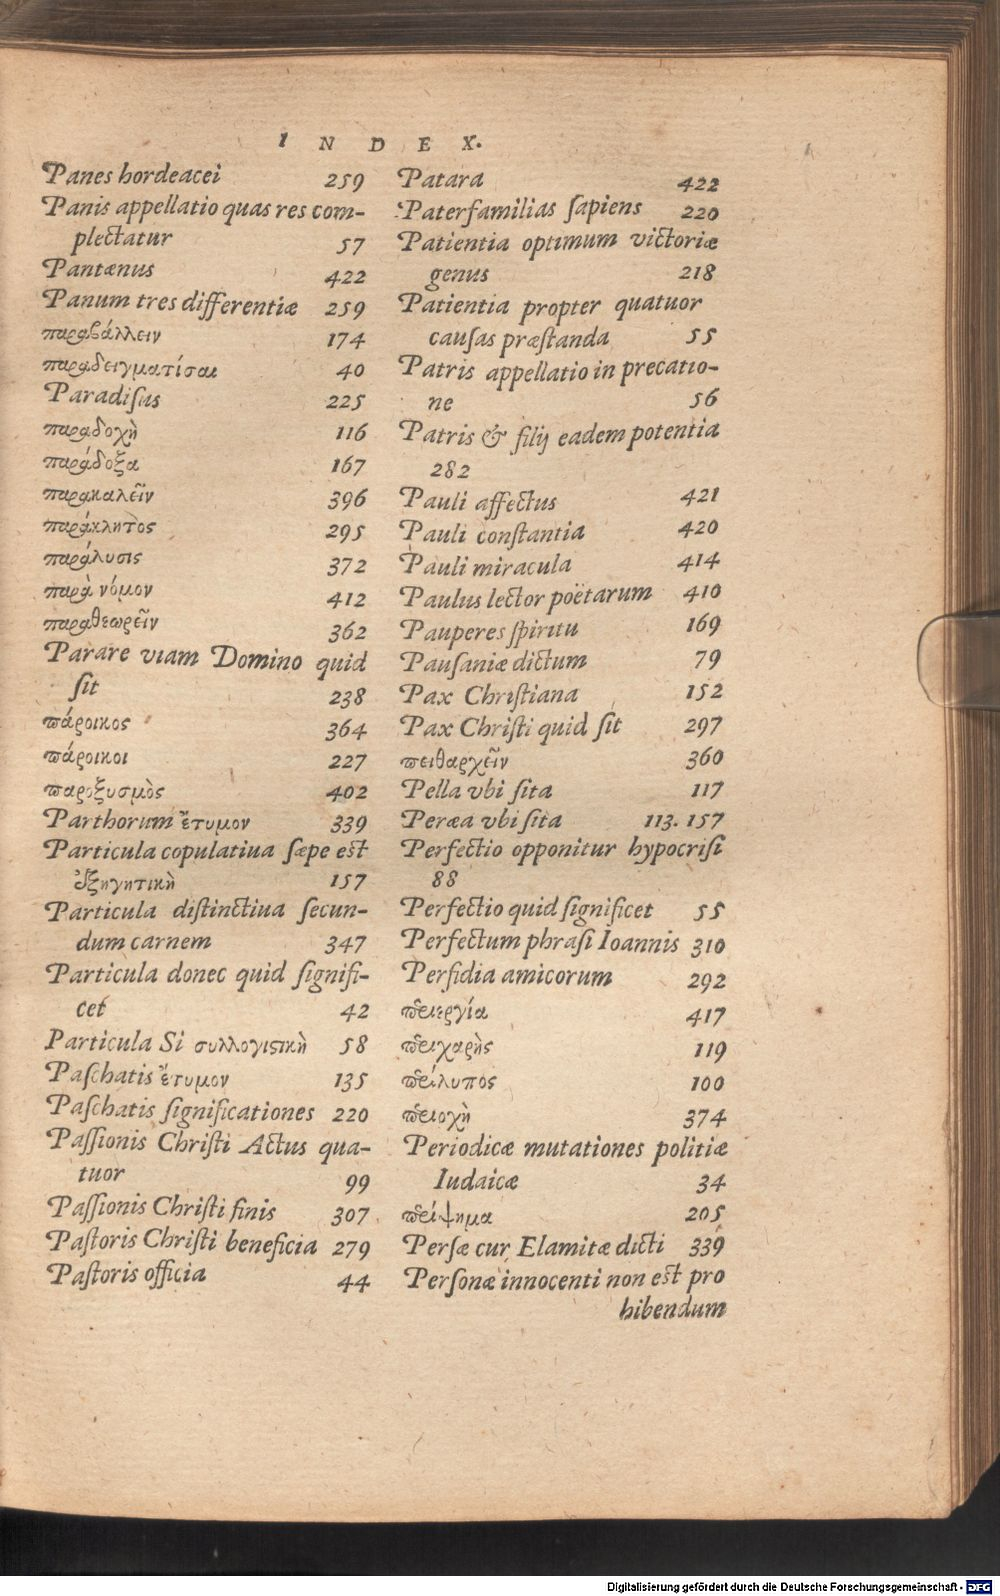 INDEX.
Panes hordeacei 259
Panis appellatio quas res com-
plectatur 57
Pantænus 422
Panum tres differentiæ 259
παραβάλλειν 174
παραδειγματίσαι 40
Paradisus 225
παραδοχὴ 116
παράδοξα 167
παρακαλεῖν 396
παράκλητος 295
παράλυσις 372
παρὰ νόμον 412
παραθεωρεῖν 362
Parare viam Domino quid
sit 238
πάροικος 364
πάροικοι 227
παροξυσμὸς 402
Parthorum ἔτυμον 339
Particula copulatiua sæpe est
ἐξηγητικὴ 157
Particula distinctiua secun-
dum carnem 347
Particula donec quid signifi-
cet 42
Particula Si συλλογιστικὴ 58
Paschatis ἔτυμον 135
Paschatis significationes 220
Passionis Christi Actus qua-
tuor 99
Passionis Christi finis 307
Pastoris Christi beneficia 279
Pastoris officia 44
Patara 422
Paterfamilias sapiens 220
Patientia optimum victoriæ
genus 218
Patientia propter quatuor
causas præstanda 55
Patris appellatio in precatio-
ne 56
Patris & filij eadem potentia
282
Pauli affectus 421
Pauli constantia 420
Pauli miracula 414
Paulus lector poëtarum 410
Pauperes spiritu 169
Pausaniæ dictum 79
Pax Christiana 152
Pax Christi quid sit 297
πειθαρχεῖν 360
Pella vbi sita 117
Peræa vbi sita 113. 157
Perfectio opponitur hypocrisi
88
Perfectio quid significet 55
Perfectum phrasi Ioannis 310
Perfidia amicorum 292
περιεργία 417
περιχαρὴς 119
περίλυπος 100
περιοχὴ 374
Periodicæ mutationes politiæ
Iudaicæ 34
περίψημα 205
Persæ cur Elamitæ dicti 339
Personæ innocenti non est pro
hibendum
Digitalisierung gefördert durch die Deutsche Forschungsgemeinschaft - DFG